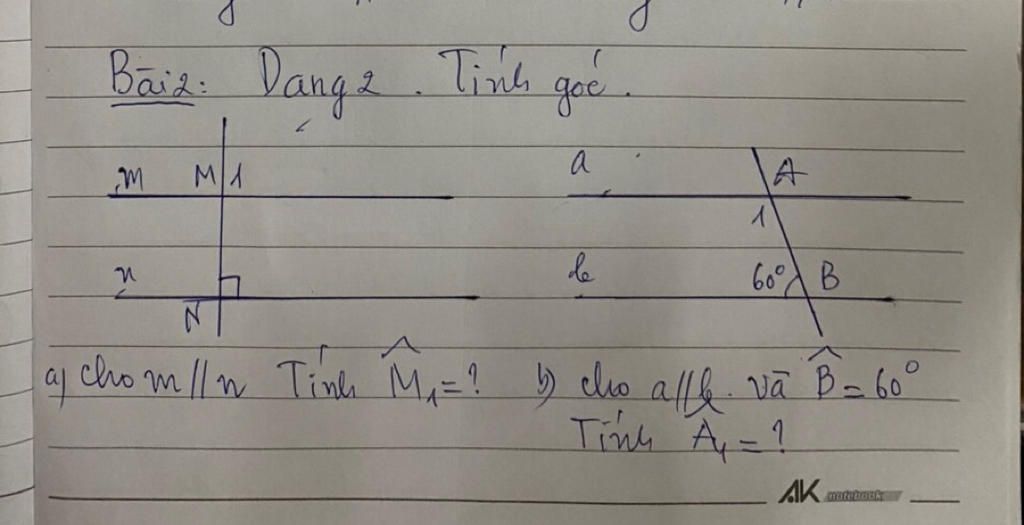 Bài 2: Dạng 2. Tính góc.
m M 1 a A
1
n b 60° B
N
a) Cho m // n Tính M̂₁ = ? b) cho a // b. và B̂ = 60°
Tính Â₁ = ?
AK notebook